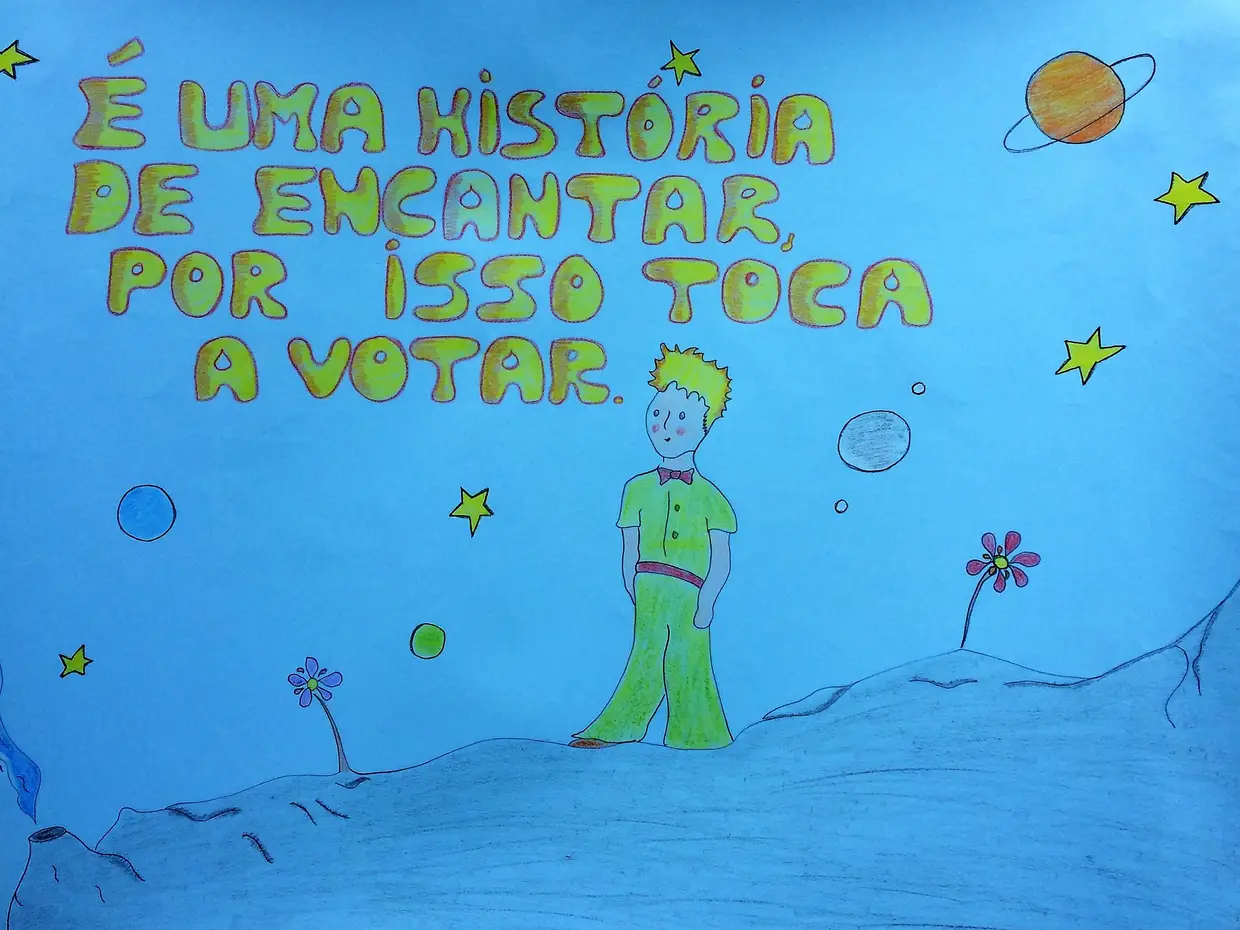 É UMA HISTÓRIA
DE ENCANTAR,
POR ISSO TOCA
A VOTAR.